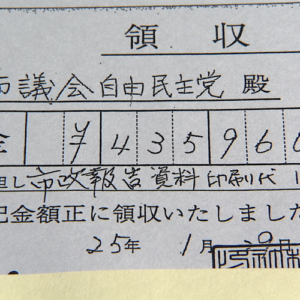 領収
市議会自由民主党 殿
金 ¥ 4 3 5 9 6
但し 市政報告資料印刷代
記金額正に領収いたしました
25年 1月 日